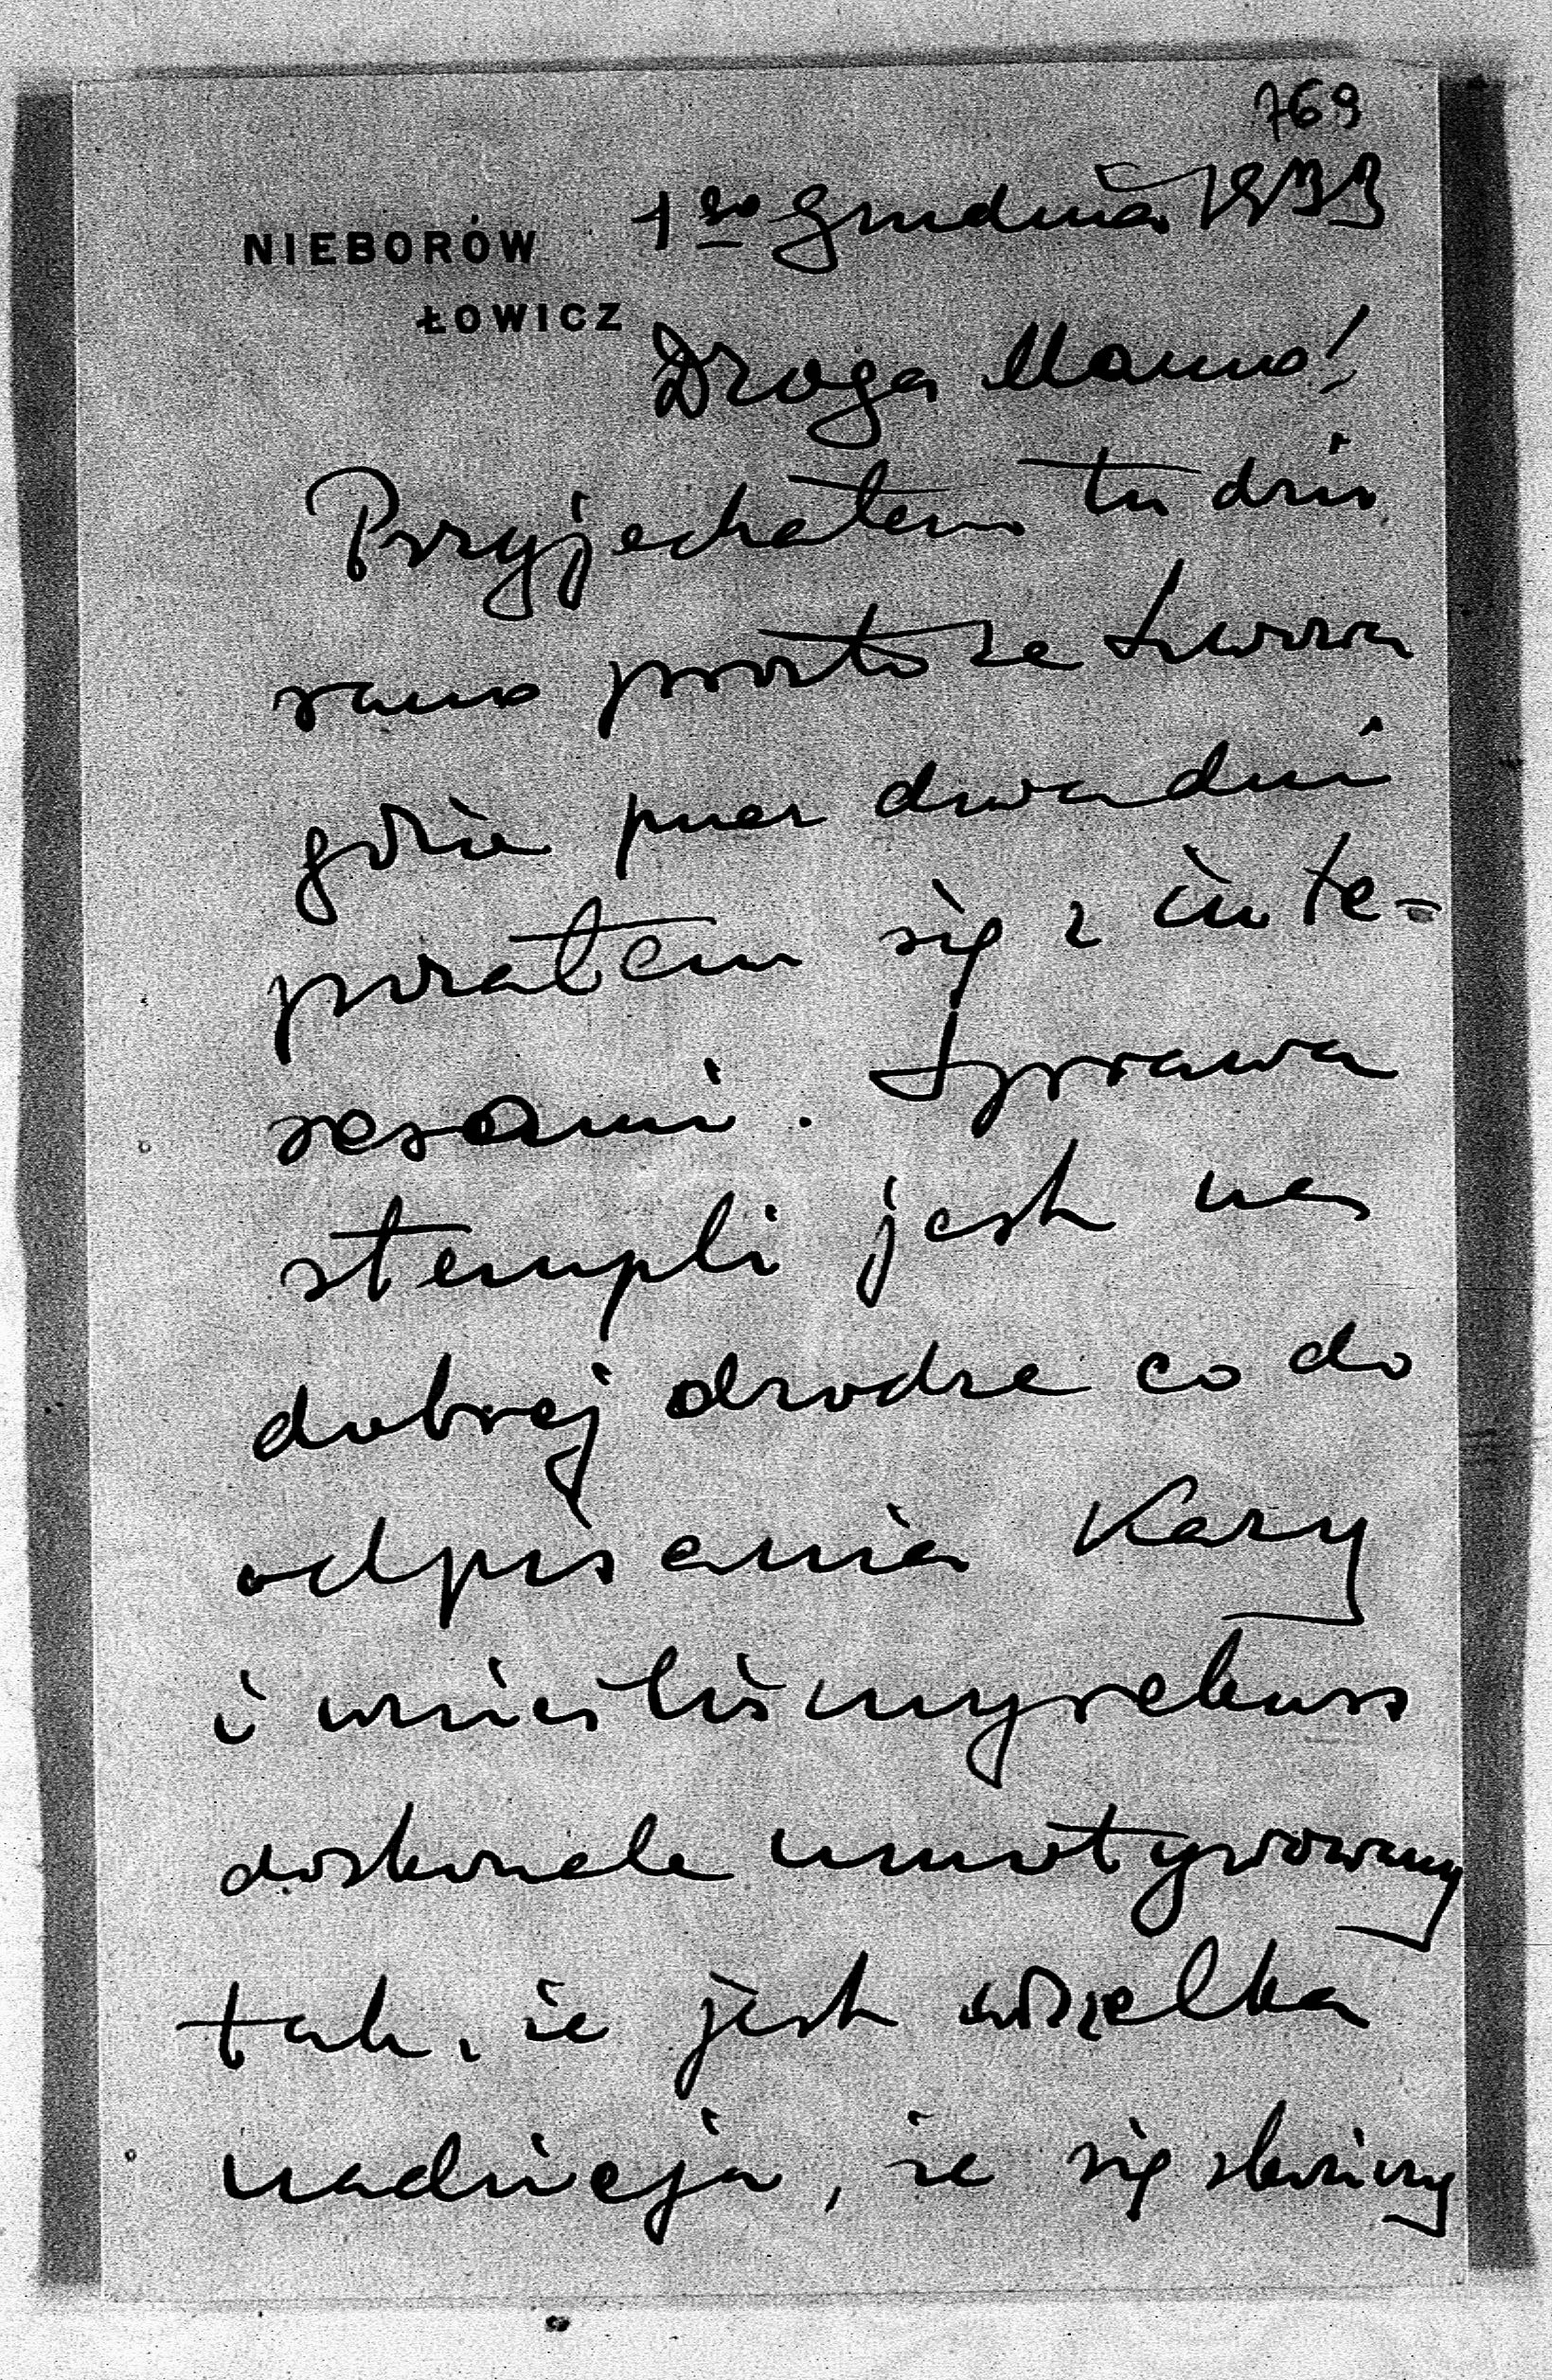 769
1go grudnia 1933
NIEBORÓW
ŁOWICZ
Droga Mamo!
Przyjechałem tu dziś
rano prosto ze Lwowa
gdzie przez dwa dni
porałem się z inte-
resami. Sprawa
stempli jest na
dobrej drodze co do
odpisania kary
i wnieśliśmy rekurs
doskonale umotywowany
tak, że jest wszelka
nadzieja, że się skończy